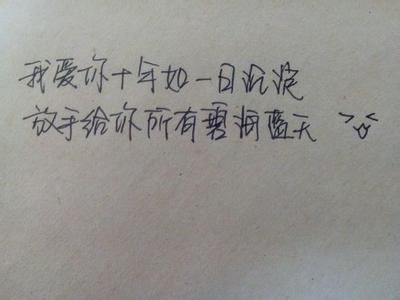 我爱你十年如一日沉淀
放手给你所有碧润蓝天